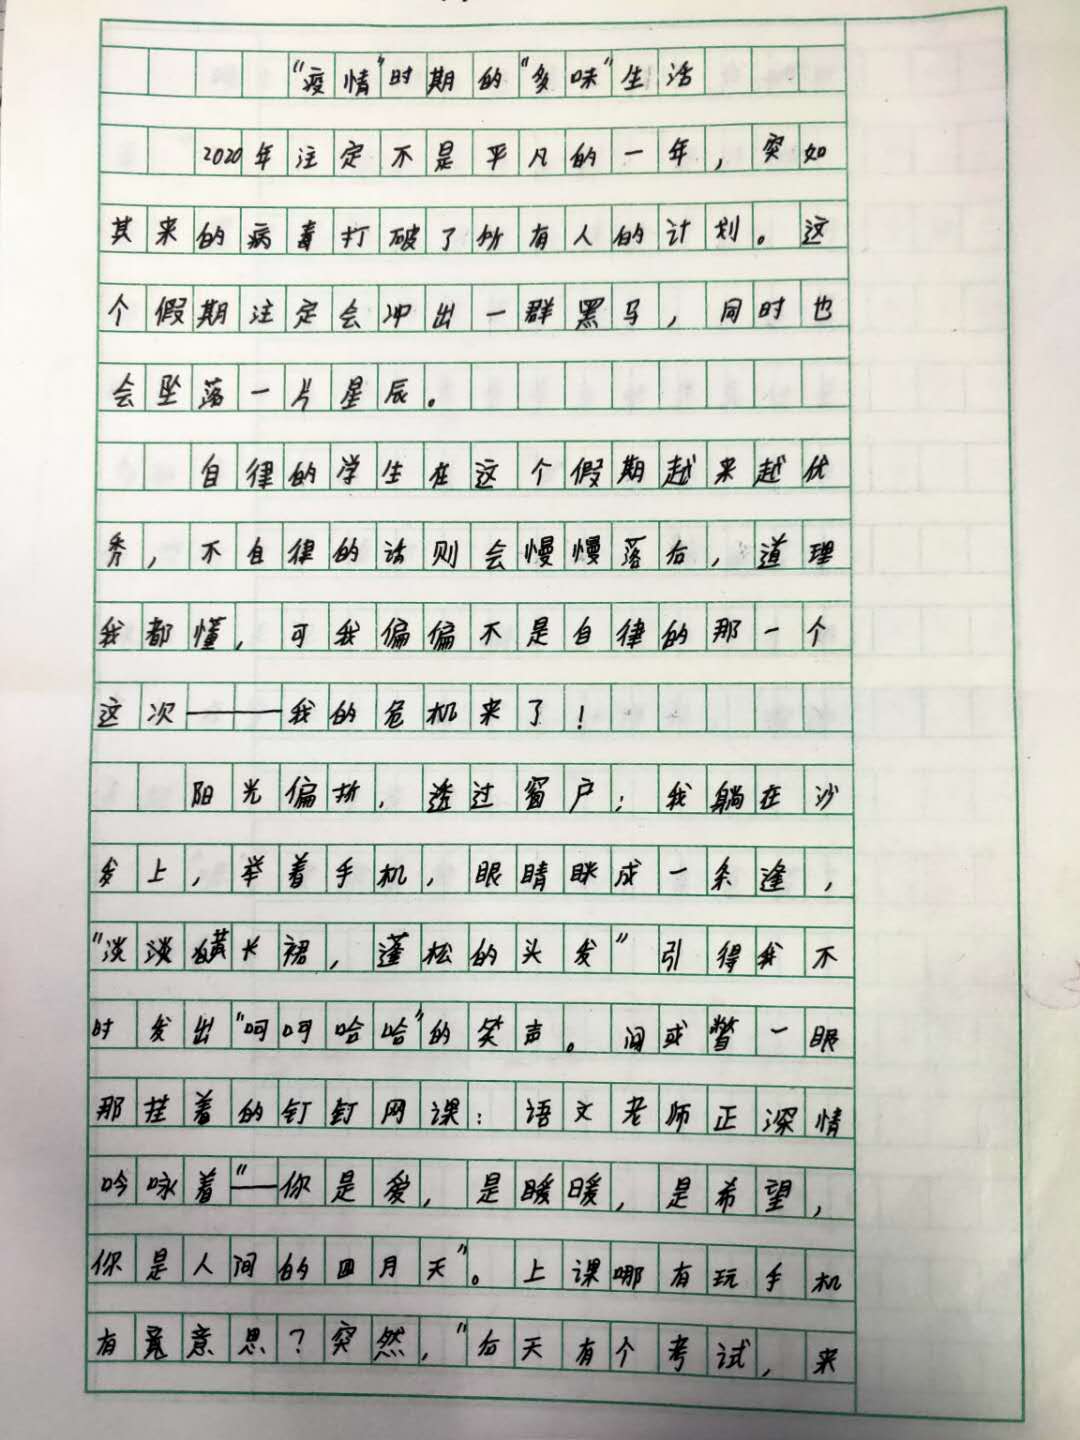 “疫情”时期的“多味”生活
2020年注定不是平凡的一年，突如
其来的病毒打破了所有人的计划。这
个假期注定会冲出一群黑马，同时也
会坠落一片星辰。
自律的学生在这个假期越来越优
秀，不自律的话则会慢慢落后，道理
我都懂，可我偏偏不是自律的那一个
这次——我的危机来了！
阳光偏折，透过窗户；我躺在沙
发上，举着手机，眼睛眯成一条逢，
“淡淡横长裙，蓬松的头发”引得我不
时发出“呵呵哈哈”的笑声。间或瞥一眼
那挂着的钉钉网课：语文老师正深情
吟咏着“—你是爱，是暖暖，是希望，
你是人间的四月天”。上课哪有玩手机
有意思？突然，“后天有个考试，来